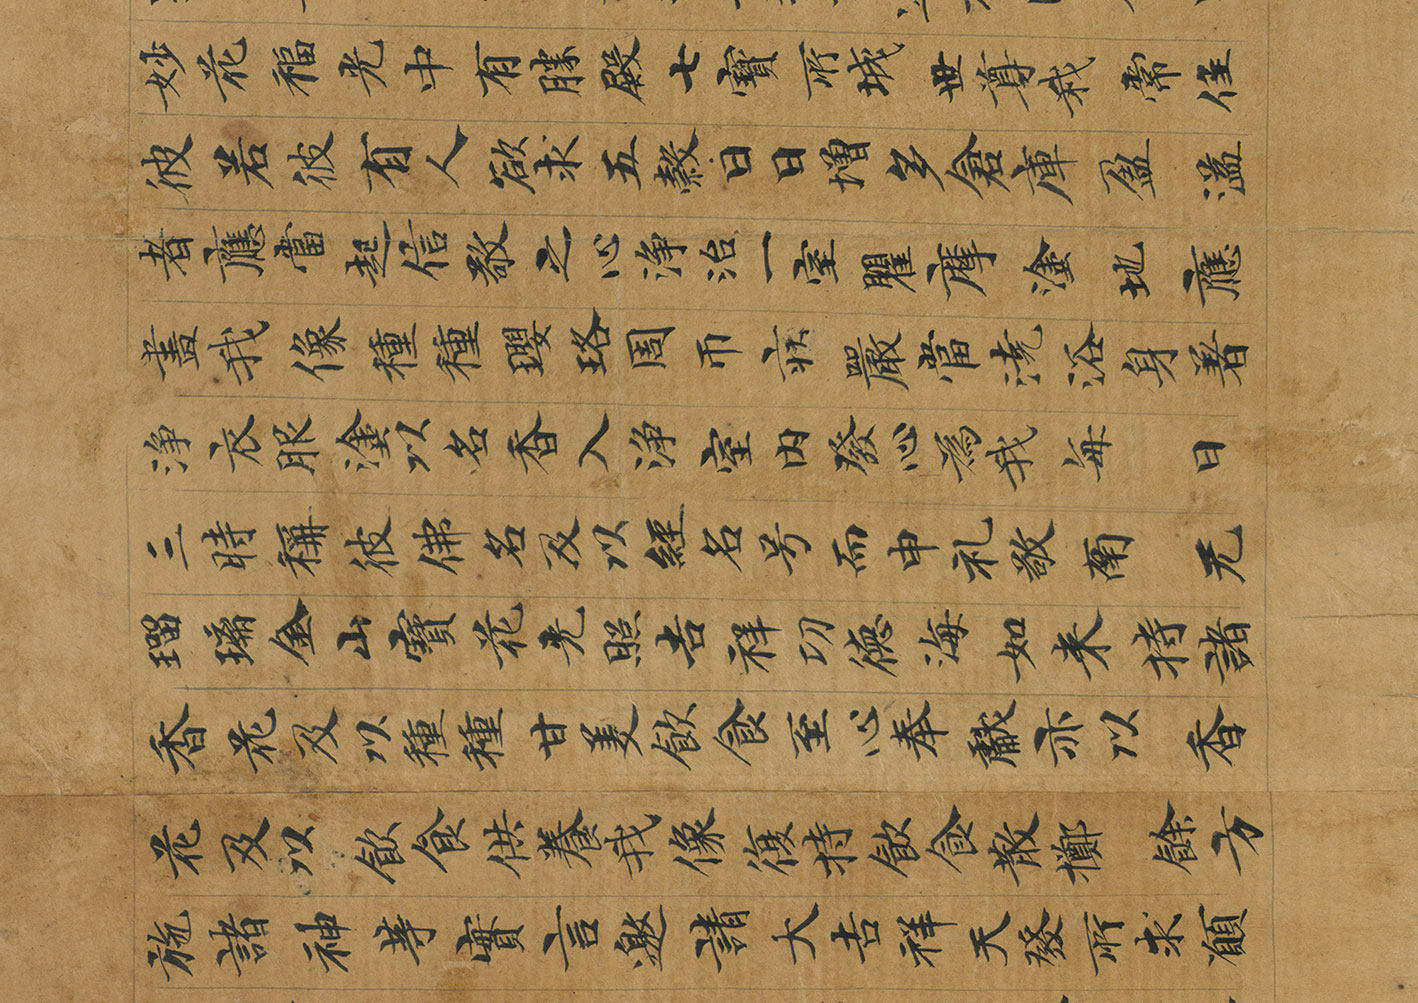 妙花福光中有勝殿七寶所城世尊我常住
彼若彼有人欲求五穀日日增多倉庫盈溢
者應當起信敬之心浄治一室瞿摩塗地應
畫我像種種瓔珞周帀莊嚴當洗浴身著
浄衣服塗以名香入浄室内發心為我每日
三時稱彼佛名及以經名号而申礼敬南无
瑠璃金山寶花光照吉祥功德海如来持諸
香花及以種種甘美飲食至心奉獻亦以香
花及以飲食供養我像復持飲食散擲餘方
施諸神等實言邀請大吉祥天發所求願